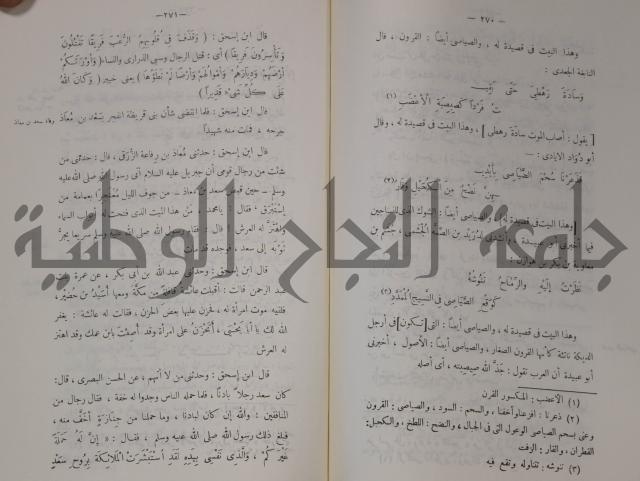 — ٢٧٠ —
وهذا البيت فى قصيدة له ، والصياصى أيضاً : القرون ، قال
النابغة الجعدى :
وَسَادَةَ رَهْطِى حَتَّى
تُ فَرْداً كَصِيصِيَةِ الْأَعْضَبِ (١)
[ يقول : أصاب الموت سادة رهطى ] ، وهذا البيت فى قصيدة له ، وقال
أبو دُوَاد الايادى :
فَذَعَرْنَا سُحْمَ الصَّيَاصِى بِأَيْدِيـ
ـهِنَّ نَضْحٌ مِنَ الْكُحَيْلِ وَقَارُ (٢)
[وهذا البيت فى قصيدة له] ، والصياصى أيضاً : الشوك الذى للنساجين
فيما أخبرنى أبو عبيدة ، وأنشدنى لدُرَيْد بن الصِّمَّة الْجُشَمِى ، جُشَم بن
معاوية بن بكر بن هوازن :
نَظَرْتُ إِلَيْهِ وَالرِّمَاحُ تَنُوشُهُ
كَوَقْعِ الصَّيَاصِى فِى النَّسِيجِ الْمُمَدَّدِ (٣)
وهذا البيت فى قصيدة له ، والصياصى أيضاً : التى [تكون] فى أرجل
الديكة ناتئة كأنها القرون الصغار ، والصياصى أيضاً : الأصول ، أخبرنى
أبو عبيدة أن العرب تقول : جَذَّ الله صِيصِيَتَه ، أى أصله
(١) الأعضب : المكسور القرن
(٢) ذعرنا : أفزعنا وأخفنا ، والسحم : السود ، والصياصى : القرون
وعنى بسحم الصياصى الوعول التى فى الجبال ، والنضح : اللطخ ، والكحيل:
القطران ، والقار : الزفت
(٣) تنوشه : تتناوله وتقع فيه
— ٢٧١ —
قال ابن إسحق : ( وَقَذَفَ فِى قُلُوبِهِمُ الرُّعْبَ فَرِيقًا تَقْتُلُونَ
وَتَأْسِرُونَ فَرِيقًا ) أى : قتل الرجال وسبى الذرارى والنساء ( وَأَوْرَثَكُمْ
أَرْضَهُمْ وَدِيَارَهُمْ وَأَمْوَالَهُمْ وَأَرْضًا لَمْ تَطَؤُوهَا ) يعنى خيبر ( وَكَانَ اللهُ
عَلَى كُلِّ شَىْءٍ قَدِيراً )
قال ابن إسحق : فلما انقضى شأن بنى قريظة انفجر بسَعْد بن مُعَاذ
جرحه ، فمات منه شهيداً
وفاة سعد بن معاذ
قال ابن إسحق : حدثنى مُعَاذ بن رِفاعة الزُّرَقِى ، قال : حدثنى من
شئت من رجال قومى أن جبريل عليه السلام أتى رسول الله صلى الله عليه
وسلم – حين قبض سعد بن مُعَاذ – من جوف الليل مُعْتَجِراً بعمامة من
إسْتَبْرَق ، فقال : يا محمد ، مَن هذا الميت الذى فتحت له أبواب السماء
واهتزَّ له العرش ؟ قال : فقام رسول الله صلى الله عليه وسلم سريعا يجرُّ
ثوبه إلى سعد ، فوجده قد مات
قال ابن إسحق : وحدثنى عبد الله بن أبى بكر ، عن عمرة بنت
عبد الرحمن قالت : أقبلت عائشة قافلة من مكَّة ومعها أُسَيْد بن حُضَيْر ،
فلقيه موت امرأة له ، فحزن عليها بعض الحزن ، فقالت له عائشة : يغفر
الله لك يا أبا يَحْيَى ، أتَحْزَنُ على امرأة وقد أُصِبْتَ بابن عمك وقد اهتز
له العرش
قال ابن إسحق : وحدثنى من لا أتهم ، عن الحسن البصرى ، قال:
كان سعد رجلاً بادناً ، فلما حمله الناس وجدوا له خفة ، فقال رجال من
المنافقين : والله إن كان لبادنا ، وما حملنا من جِنَازة أخَفَّ منه ،
فبلغ ذلك رسول الله صلى الله عليه وسلم ، فقال : « إنَّ لَهُ حَمَلَةً
غَيْرَكُمْ ، وَالَّذِى نَفْسِى بِيَدِهِ لَقَدِ اسْتَبْشَرَتِ الْمَلَائِكَةُ بِرُوحِ سَعْدٍ
جامعة النجاح الوطنية